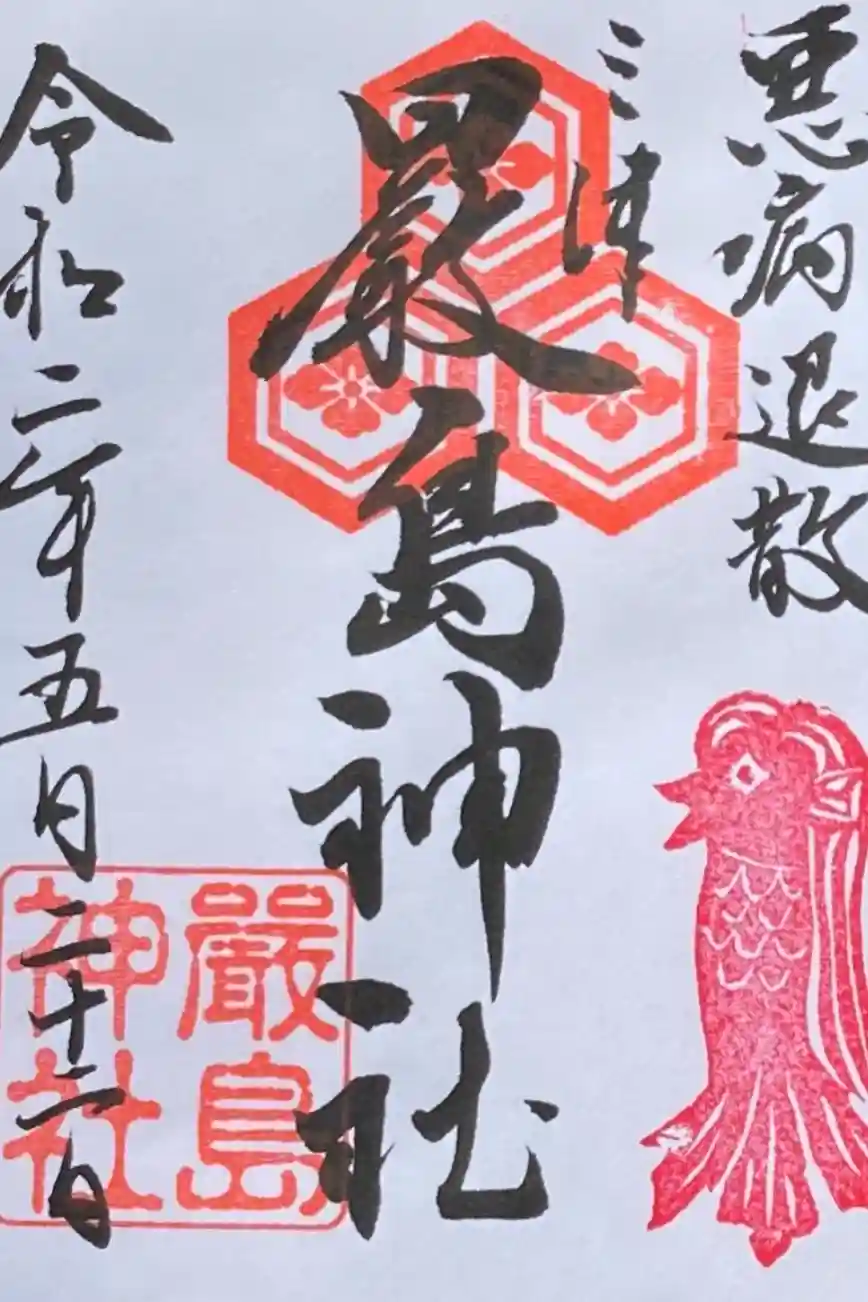 悪病退散
三津
嚴島神社
嚴島
神社
令和二年五月二十二日